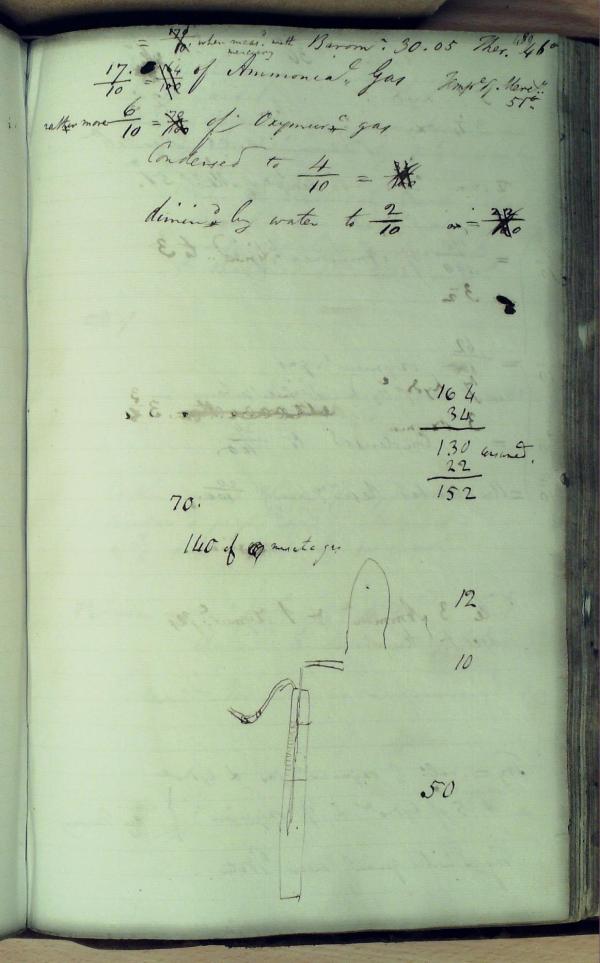 = 170/10 when meas.d with mercury Barom.r 30.05 Ther. 48° 46°
17./10 = 164/100 of Ammonia.l Gas Temp.r of Merc.y 51°
rather more 6/10 = 70/100 of Oxymur.c gas
Condensed to 4/10 =
dimin.d by water to 2/10 or = 22/100
164
34
130 consumed.
22
152
70.
140 of muriatic gas
12
10
50